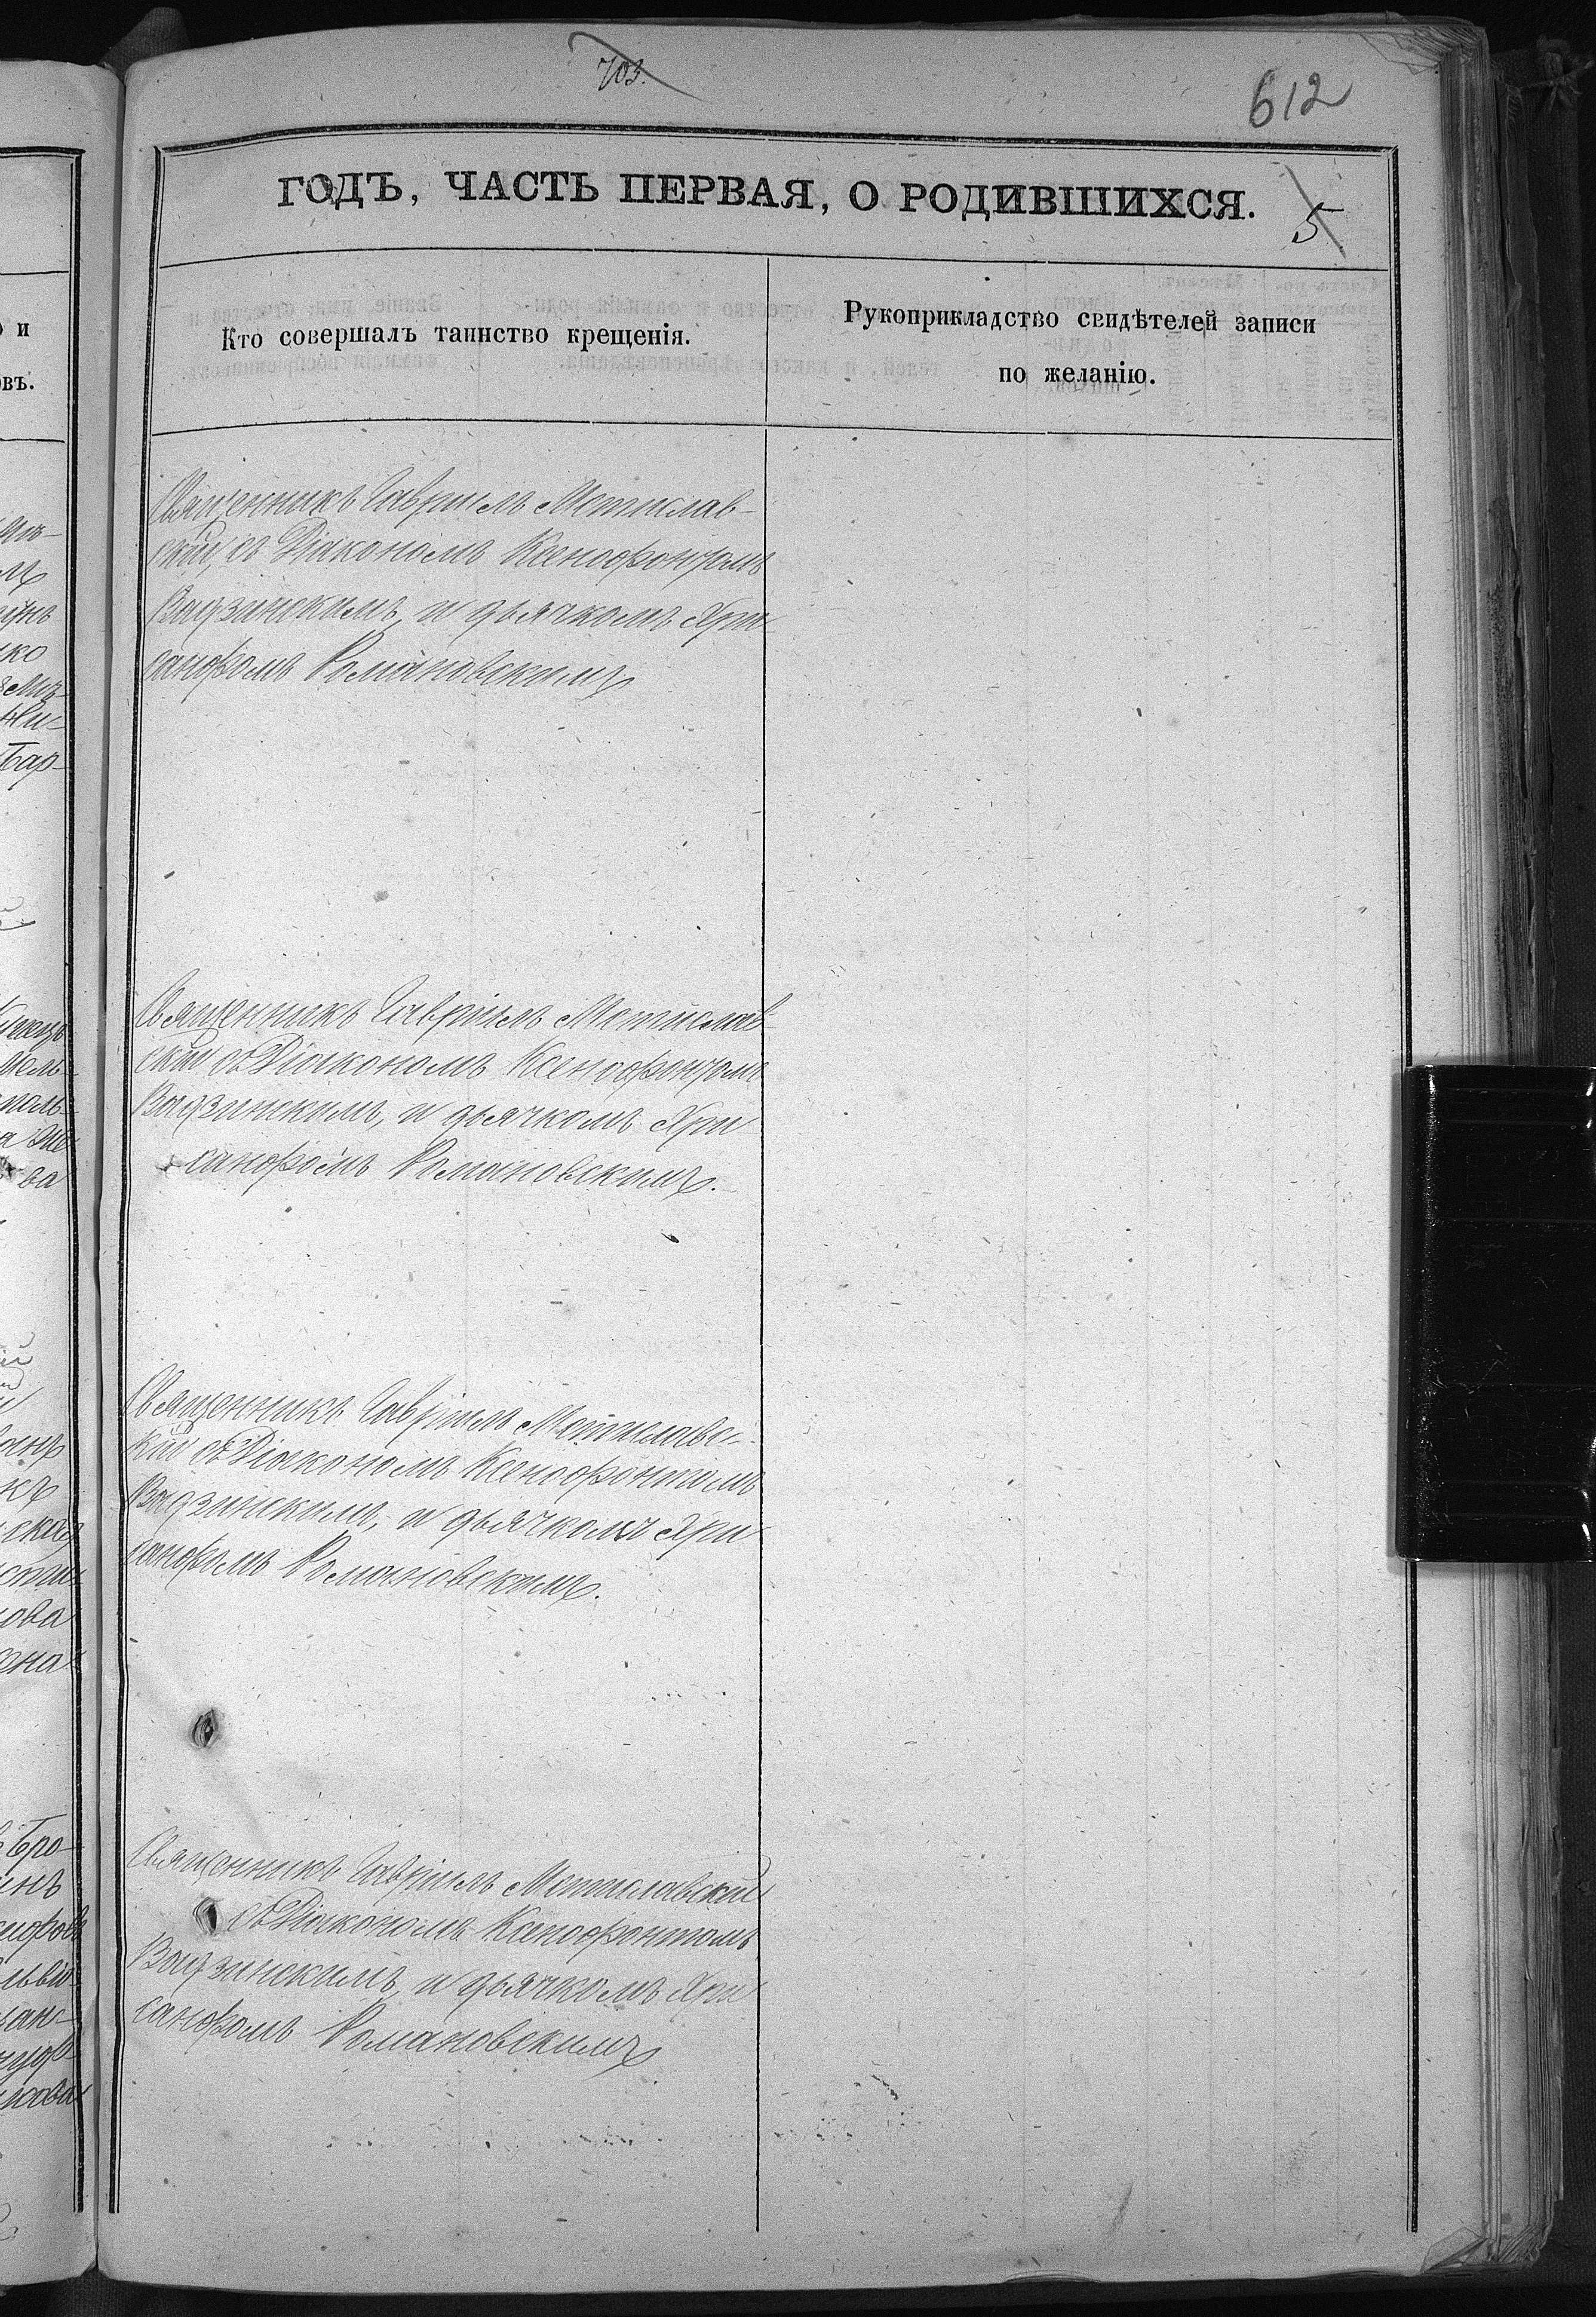 703.
612
ГОДЪ, ЧАСТЬ ПЕРВАЯ, О РОДИВШИХСЯ.
5
Кто совершалъ таинство крещенія.
Рукоприкладство свидѣтелей записи
по желанію.
и
овъ.
Священникъ Гавріилъ Мстислав-
скій, съ Діакономъ Ксенофонтомъ
Вадзинскимъ, и дьячкомъ Хри-
санфомъ Романовскимъ
Священникъ Гавріилъ Мстислав-
скій съ Діакономъ Ксенофонтомъ
Вадзинскимъ, и дьячкомъ Хри-
санфомъ Романовскимъ.
Священникъ Гавріилъ Мстиславс-
кій съ Діакономъ Ксенофонтомъ
Вадзинскимъ, и дьячкомъ Хри-
санфомъ Романовскимъ.
Священникъ Гавріилъ Мстиславскій
съ Діакономъ Ксенофонтомъ
Вадзинскимъ, и дьячкомъ Хри-
санфомъ Романовскимъ